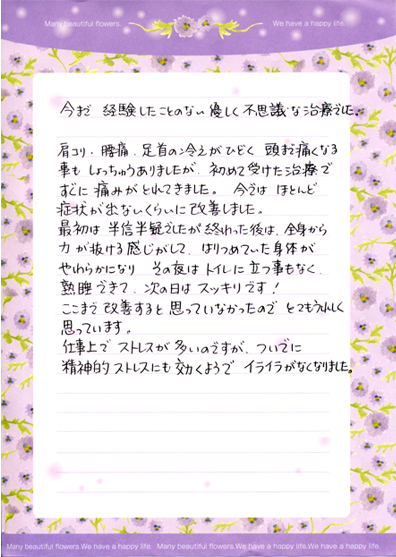 Many beautiful flowers.
We have a happy life.
今まで 経験したことのない 優しく 不思議な治療でした。
肩コリ・腰痛、足首の冷えがひどく 頭まで痛くなる
事も しょっちゅうありましたが、初めて受けた治療で
すぐに 痛みがとれてきました。 今では ほとんど
症状が出ないくらいに 改善しました。
最初は 半信半疑でしたが 終わった後は、全身から
力が抜ける感じがして、はりつめていた身体が
やわらかになり その夜はトイレに立つ事もなく、
熟睡できて、次の日は スッキリです!
ここまで 改善すると 思っていなかったので とてもうれしく
思っています。
仕事上で ストレスが 多いのですが、ついでに
精神的ストレスにも 効くようで イライラがなくなりました。
Many beautiful flowers.We have a happy life. Many beautiful flowers.We have a happy life.We have a happy life.